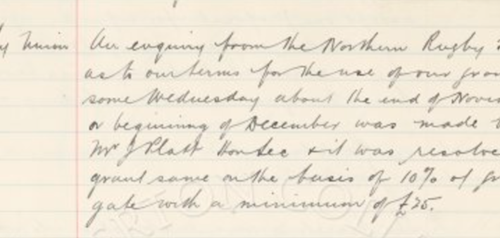 Union An enquiry from the Northern Rugby
as to our terms for the use of our
some Wednesday about the end of
or beginning of December was made
Mr J Platt Hon Sec & it was
grant same on the basis of 10% of
gate with a minimum of £25.